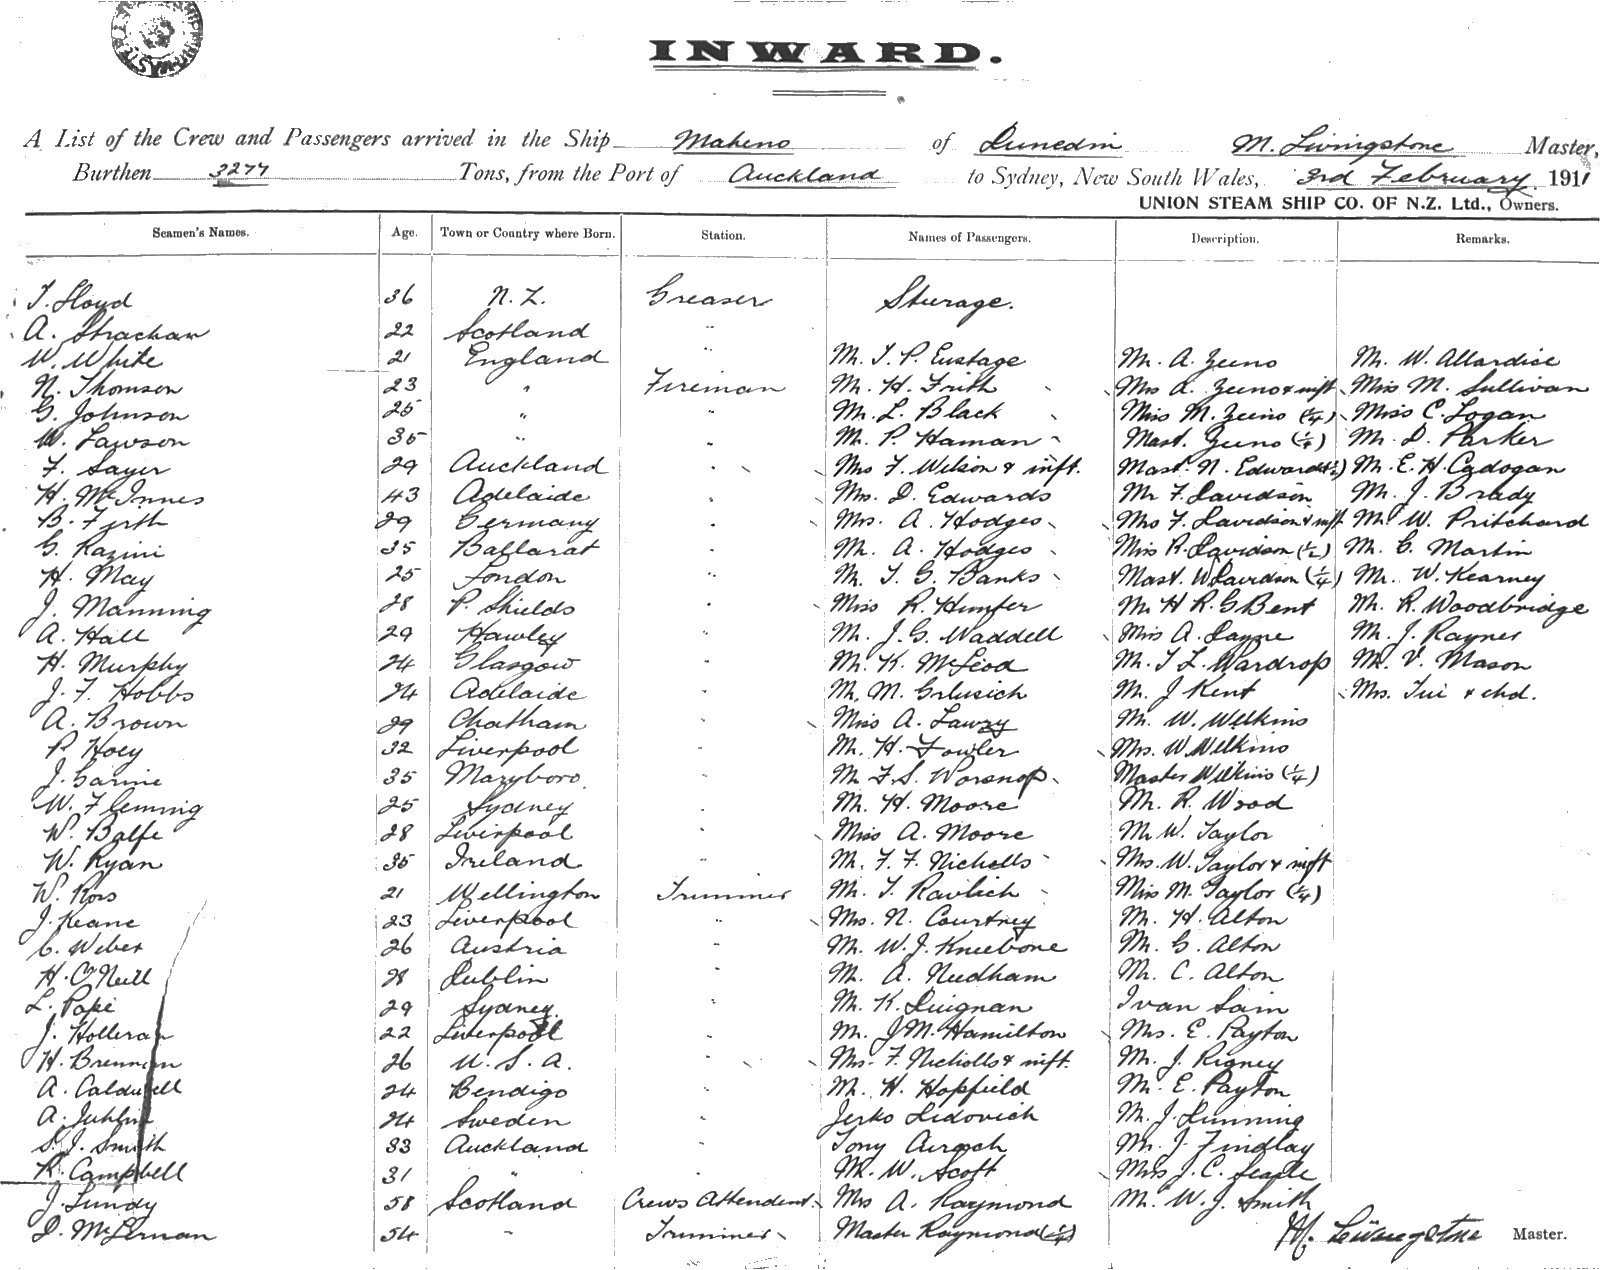 INWARD.
A List of the Crew and Passengers arrived in the Ship Maheno of Dunedin M. Livingstone Master,
Burthen 3277 Tons, from the Port of Auckland to Sydney, New South Wales, 3rd February 1911
UNION STEAM SHIP CO. OF N.Z. Ltd., Owners.
Seamen's Names. Age. Town or Country where Born. Station. Names of Passengers. Description. Remarks.
T. Lloyd 36 N. Z. Greaser Sturage.
A. Strachan 22 Scotland "
W. White 21 England " Mr. T. P. Eustage Mr. A. Zeeno Mr. W. Allardice
N. Thomson 23 " Fireman Mr. H. Frith Mrs A. Zeeno & inft. Miss M. Sullivan
G. Johnson 25 " " Mr. L. Black Miss M. Zeeno (1/4) Miss C. Logan
W. Lawson 35 " " Mr. P. Haman Mast. Zeeno (1/4) Mr. D. Parker
F. Sayer 29 Auckland " Mrs F. Wilson & inft. Mast. N. Edwards Mr. E. H. Cadogan
H. McInnes 43 Adelaide " Mrs. D. Edwards Mr F. Davidson Mr. J. Brady
B. Firth 29 Germany " Mrs. A. Hodges Mrs F. Davidson & inft Mr. W. Pritchard
G. Razini 35 Ballarat " Mr. A. Hodges Miss R. Davidson (1/2) Mr. C. Martin
H. May 25 London " Mr. T. G. Banks Mast. W Davidson (1/4) Mr. W. Kearney
J. Manning 28 P. Shields " Miss R. Humfer Mr H R. G Bent Mr. R. Woodbridge
A. Hall 29 Hawley " Mr. J. G. Waddell Miss A. Layne Mr. J. Rayner
H. Murphy 24 Glasgow " Mr. K. McLeod Mr. T L. Wardrop Mr. V. Mason
J. F. Hobbs 24 Adelaide " Mr. M. Grlusich Mr. J Kent Mrs. Tui & chd.
A. Brown 29 Chatham " Miss A. Lawzy Mr. W. Welkins
P. Hoey 32 Liverpool " Mr. H. Fowler Mrs. W. Welkins
J. Garine 35 Maryboro. " Mr F. S. Worsnop Master Welkins (1/4)
W. Fleming 25 Sydney " Mr. H. Moore Mr. R. Wood
W. Balfe 28 Liverpool " Miss A. Moore Mr W. Taylor
W. Ryan 35 Ireland " Mr. F. F. Nicholls Mrs. W. Taylor & inft
W. Ross 21 Wellington Trimmer Mr. T. Ravlich Miss M. Taylor (1/4)
J. Keane 23 Liverpool " Mrs. N. Courtney Mr. H. Alton
C. Weber 26 Austria " Mr. W. J. Kneebone Mr. G. Alton
H. O'Neill 28 Dublin " Mr. A. Needham Mr. C. Alton
L. Pape 29 Sydney. " Mr. K. Duignan Ivan Sain
J. Holleran 22 Liverpool " Mr. J M. Hamilton Mrs. E. Payton
H. Brennan 26 U. S. A. " Mrs. F. Nicholls & inft. Mr. J. Rigney
A. Caldwell 24 Bendigo " Mr. H. Hopfield Mr. E. Payton
A. Juhlin 24 Sweden " Jerko Lidovich Mr. J. Dunning
S. J. Smith 33 Auckland " Tony Mr. J. Findlay
R. Campbell 31 " " Mr. W. Scott Mrs J. C. Searle
J. Lundy 58 Scotland Crews Attendent Mrs A. Raymond Mr. W. J. Smith
D. McLernan 54 " Trimmer Master Raymond (1/4) M. Livingstone Master.